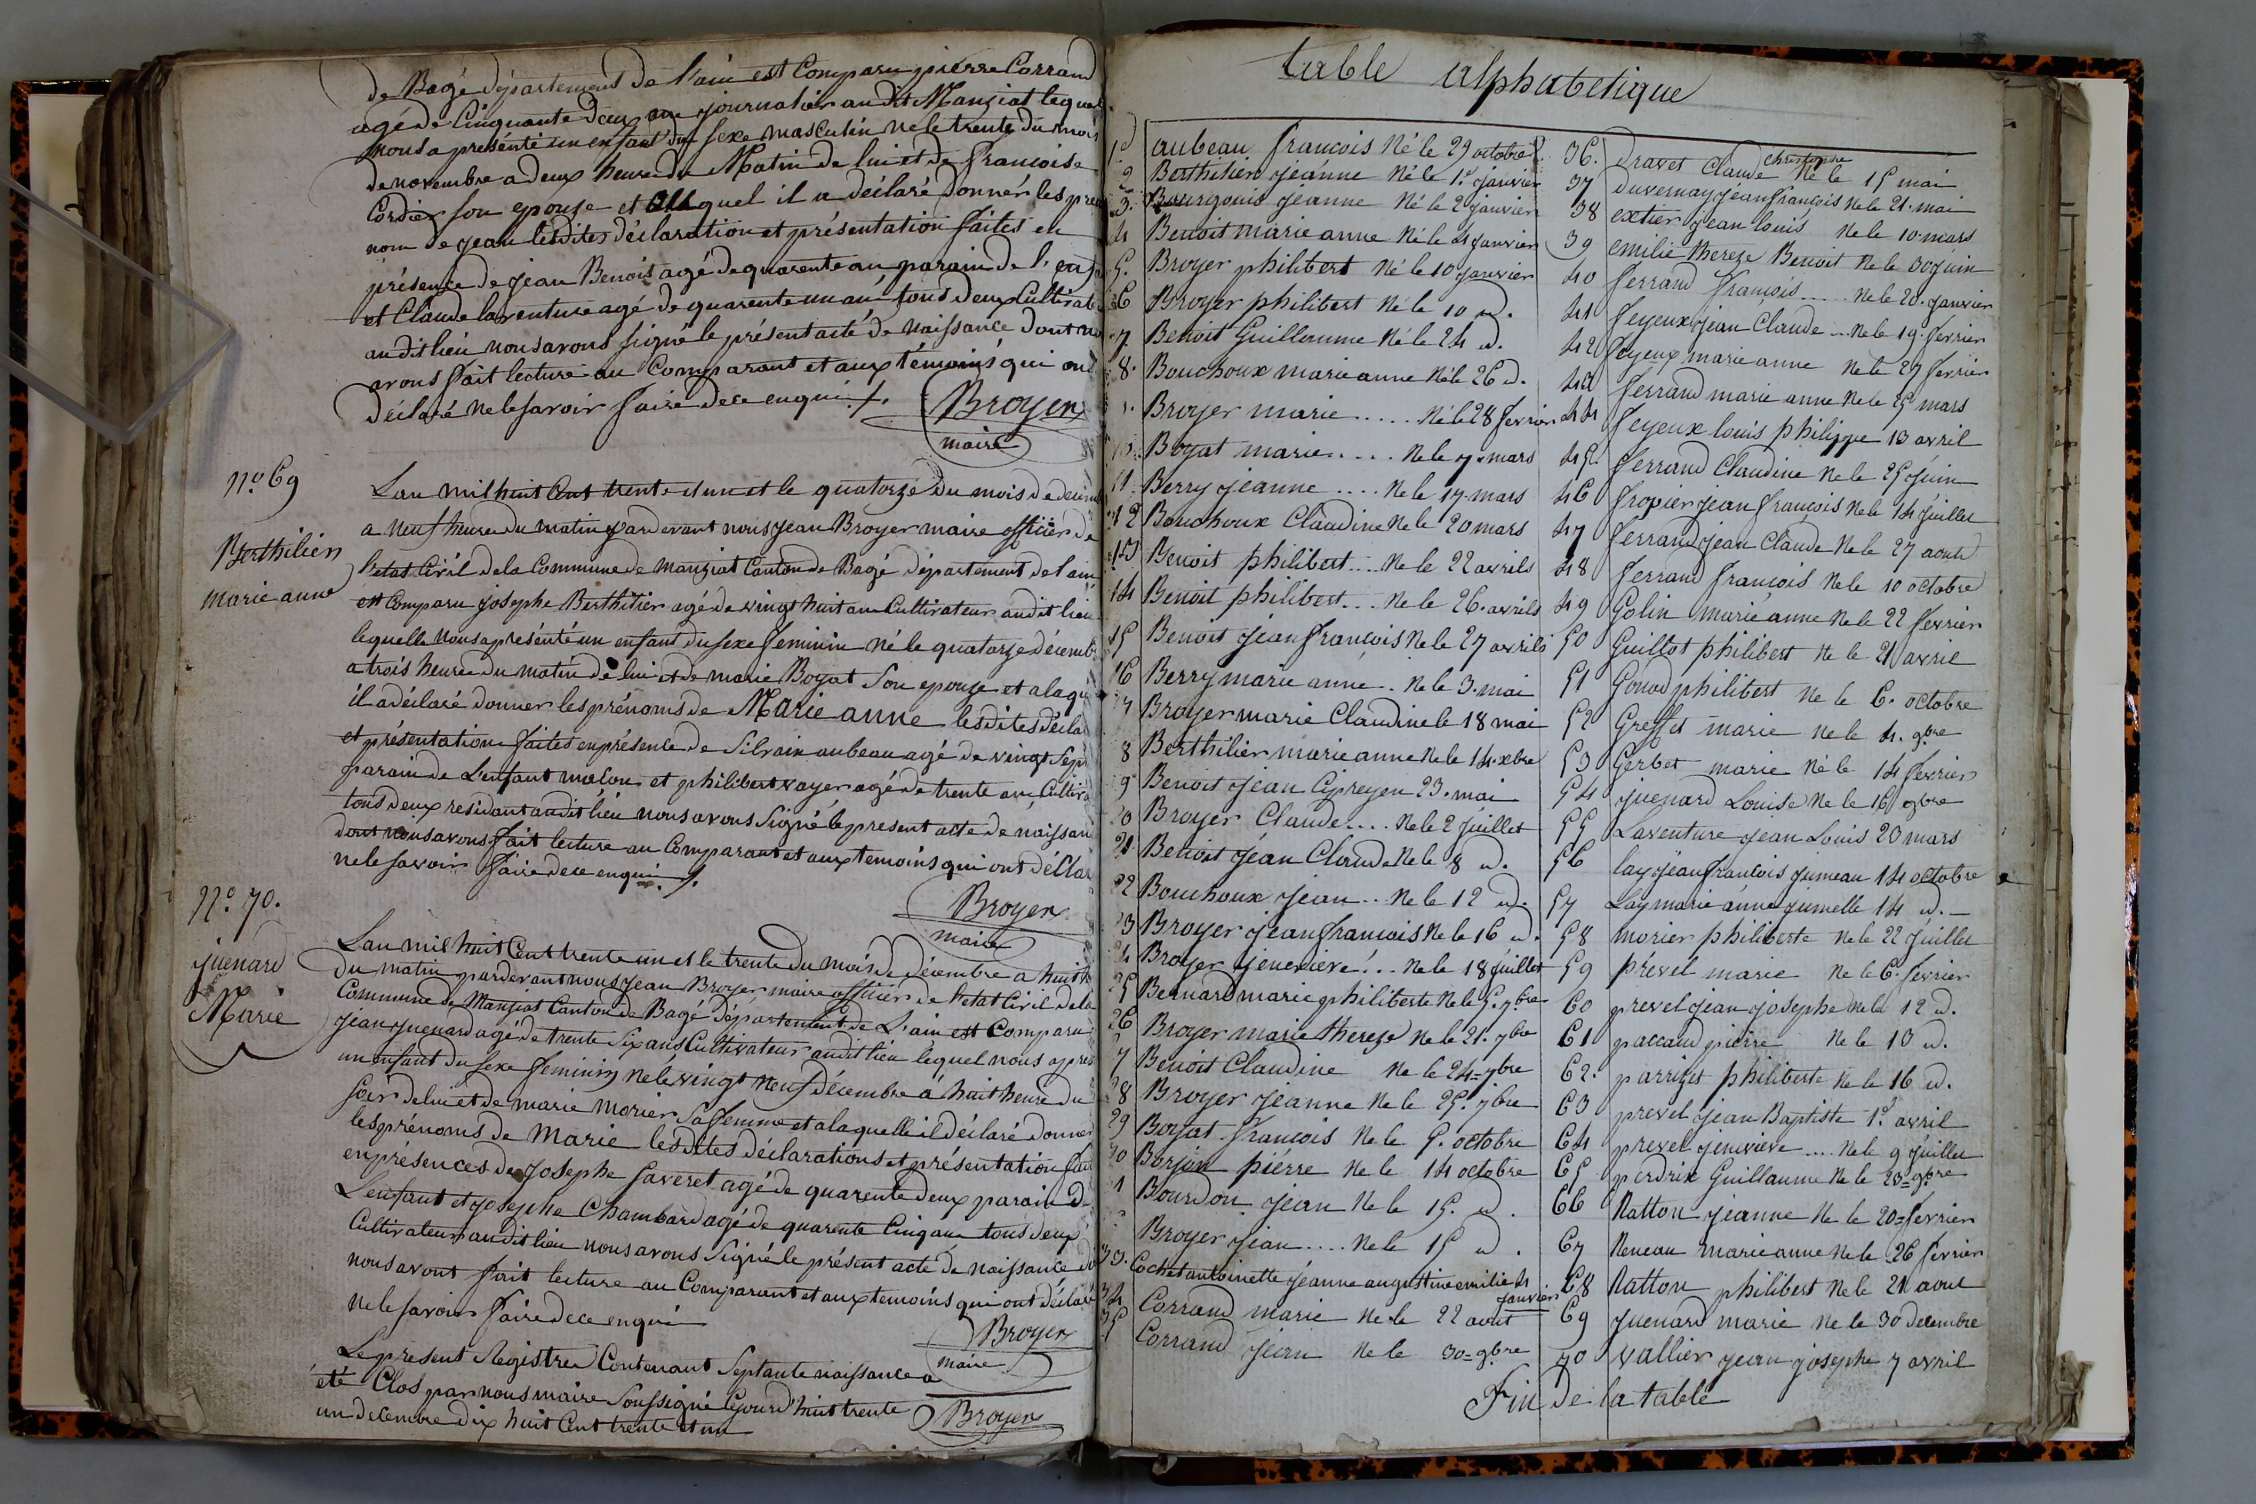 de Bagé département de l'ain est Comparu pierre Corrand
agé de Cinquante deux ans journalier au dit Manziat lequel
nous a présenté un enfant du sexe masculin né le trente du mois
de novembre a deux heure du Matin de lui et de francoise
Cordier son epouse et auquel il a déclaré donner les pre
nom de jean lesdites déclaration et présentation faites en
présence de jean Benoit agé de quarente an parain de l'enf
et Claude laventure agé de quarente un an tous deux Cultivate
au dit lieu nous avons signé le présent acte de naissance dont n
avons fait lecture au Comparant et aux témoins qui ont
déclaré ne le savoir faire de ce enquis /.
Broyer
maire
No. 69
Berthilier
marie anne
Lan mil huit Cent trente et un et le quatorze du mois de decem
a neuf heure du matin pardevant nous jean Broyer maire officier de
l'etat Civil de la Commune de manziat Canton de Bagé département de l'ain
est Comparu josephe Berthilier agé de vingt huit an Cultivateur au dit lieu
lequelle nous a présenté un enfant du sexe feminin né le quatorze décemb
a trois heure du matin de lui et de marie Boyat son epouze et a laqu
il a déclaré donner les prénoms de Marie anne lesdites décla
et présentation faites en présence de Silvain aubeau agé de vingt sept
parain de L'enfant macon et philibert voyer agé de trente an Cultiva
tous deux residant au dit lieu nous avons Signé le present acte de naissan
dont nous avons fait lecture au Comparant et aux temoins qui ont déclar
ne le savoir faire de ce enquis /.
Broyer
maire
No. 70.
juenard
Marie
Lan mil huit Cent trente un et le trente du mois de décembre a huit h
du matin pardevant nous jean Broyer maire officier de l'etat Civil de la
Commune de Manziat Canton de Bagé département de L'ain est Comparu
jean juenard agé de trente six ans Cultivateur au dit lieu lequel nous a pres
un enfant du sexe feminin né le vingt neuf décembre á huit heure du
soir de lui et de marie morier sa femme et a laquelle il déclaré donner
les prénoms de Marie lesdites déclarations et présentation fai
en présences de josephe faveret agé de quarente deux parain de
L'enfant et josephe Chambard agé de quarente Cinq an tous deux
Cultivateur au dit lieu nous avons signé le présent acte de naissance do
nous avont fait lecture au Comparant et aux temoins qui ont déclaré
ne le savoir faire de ce enquis
Broyer
maire
Le present Registre Contenant Septante naissance a
été Clos par nous maire soussigné ce jourd'huit trente
un decembre dix huit Cent trente et un
Broyer
table alphabetique
1.° aubeau francois Né le 29 octobre
2 Berthilier jeánne Né le 1.° janvier
3. Bourgouin jeanne Né le 2 janvier
4 Benoit marie anne Né le 4 janvier
5. Broyer philibert Né le 10 janvier
6 Broyer philibert Né le 10 d.
7 Benoit Guillaume Né le 24 d.
8. Bouchoux marie anne Né le 26 d.
9. Broyer marie ..... Né le 28 fevrier
10. Boyat marie .... Ne le 7 mars
11 Berry jeanne .... Ne le 17 mars
12 Bouchoux Claudine Ne le 20 mars
13 Benoit philibert ... Ne le 22 avrils
14 Benoit philibert ... Ne le 26 avrils
15 Benoit jéan françois Ne le 27 avrils
16 Berry marie anne .. Ne le 3 mai
7 Broyer marie Claudine le 18 mai
8 Berthilier marie anne Ne le 14 xbre
9 Benoit jean Cipreyen 23 mai
20 Broyer Claude .... Ne le 2 juillet
21 Benoit jéan Claude Ne le 8 d.
22 Bouchoux jean .. Ne le 12 d.
23 Broyer jéan francois Ne le 16 d.
24 Broyer genevieve ... Ne le 18 juillet
25 Bernard marie philiberte Ne le 5. 7bre
26 Broyer marie thereze Ne le 21. 7bre
7 Benoit Claudine Ne le 24 = 7bre
28 Broyer jeanne Ne le 25. 7bre
29 Boyat francois Ne le 5. octobre
30 Borjon piérre Ne le 14 octobre
1 Bourdon jean Ne le 15. d.
Broyer jean .... Ne le 15 d.
33. Cochet antoinette jéanne augustine emilie 4
janvier
34 Corrand marie Ne le 22 aout
35 Corrand jean Ne le 30 = 9bre
36. dravet Claude christophe Né le 15 mai
37 duvernay jéan françois Ne le 21 mai
38 extier jean louis Ne le 10 mars
39 emilie thereze Benoit Ne le 30 juin
40 ferrand françois .... Ne le 20 janvier
41 feyeux jean Claude ... Ne le 19 fevrier
42 feyeux marie anne Ne le 27 fevrier
43 ferrand marie anne Ne le 25 mars
44 feyeux louis philippe 13 avril
45. ferrand Claudine Ne le 25 juin
46 fropier jean françois Ne le 14 juillet
47 ferrand jean Claude Ne le 27 aoute
48 ferrand francois Ne le 10 octobre
49 Golin marie anne Ne le 22 fevrier
50 Guillot philibert Ne le 21 avril
51 Gonod philibert Ne le 6. octobre
52 Greffet marie Ne le 4. 9bre
53 Gerbet marie Né le 14 fevrier
54 juenard Louise Ne le 16 9bre
55 Laventure jean Louis 20 mars
56 lay jéan francois jumeau 14 octobre
57 Lay marie ánne jumelle 14 d. —
58 morier philiberte Ne le 22 juillet
59 prével marie Ne le 6. fevrier
60 prevel jean josephe Ne le 12 d.
61 paccaud pierre Ne le 13 d.
62. parrizet philiberte Ne le 16 d.
63 prevel jean Baptiste 1.° avril
64 prevel jenevieve .... Ne le 9 juillet
65 perdrix Guillaume Ne le 23 = 9bre
66 Ratton jeanne Ne le 20 = fevrier
67 Reneau marie anne Ne le 26 fevrier
68 Ratton philibert Ne le 21 aout
69 juenard marie Ne le 30 decembre
70 vallier jean josephe 7 avril
Fin de la table